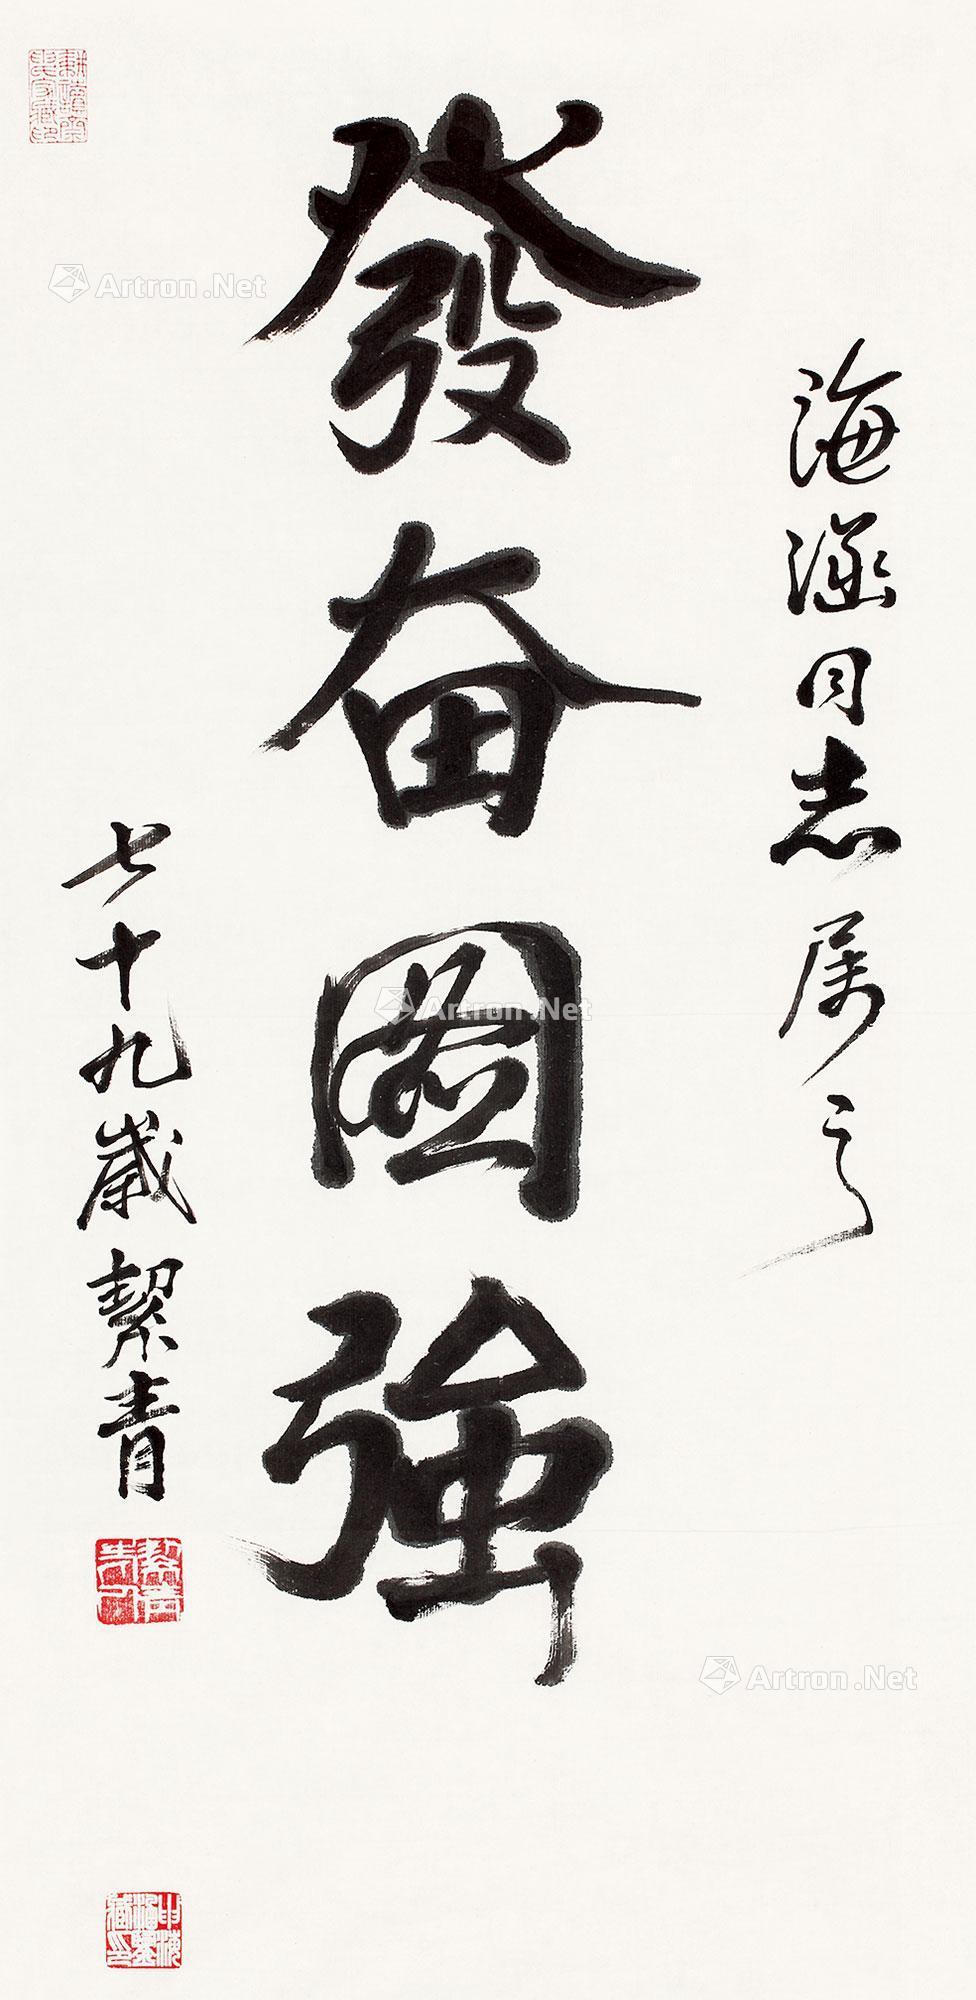 海涵同志属之
發奋图強
七十九歲絜青
絜青
Artron.Net
Artron.Net
Artron.Net